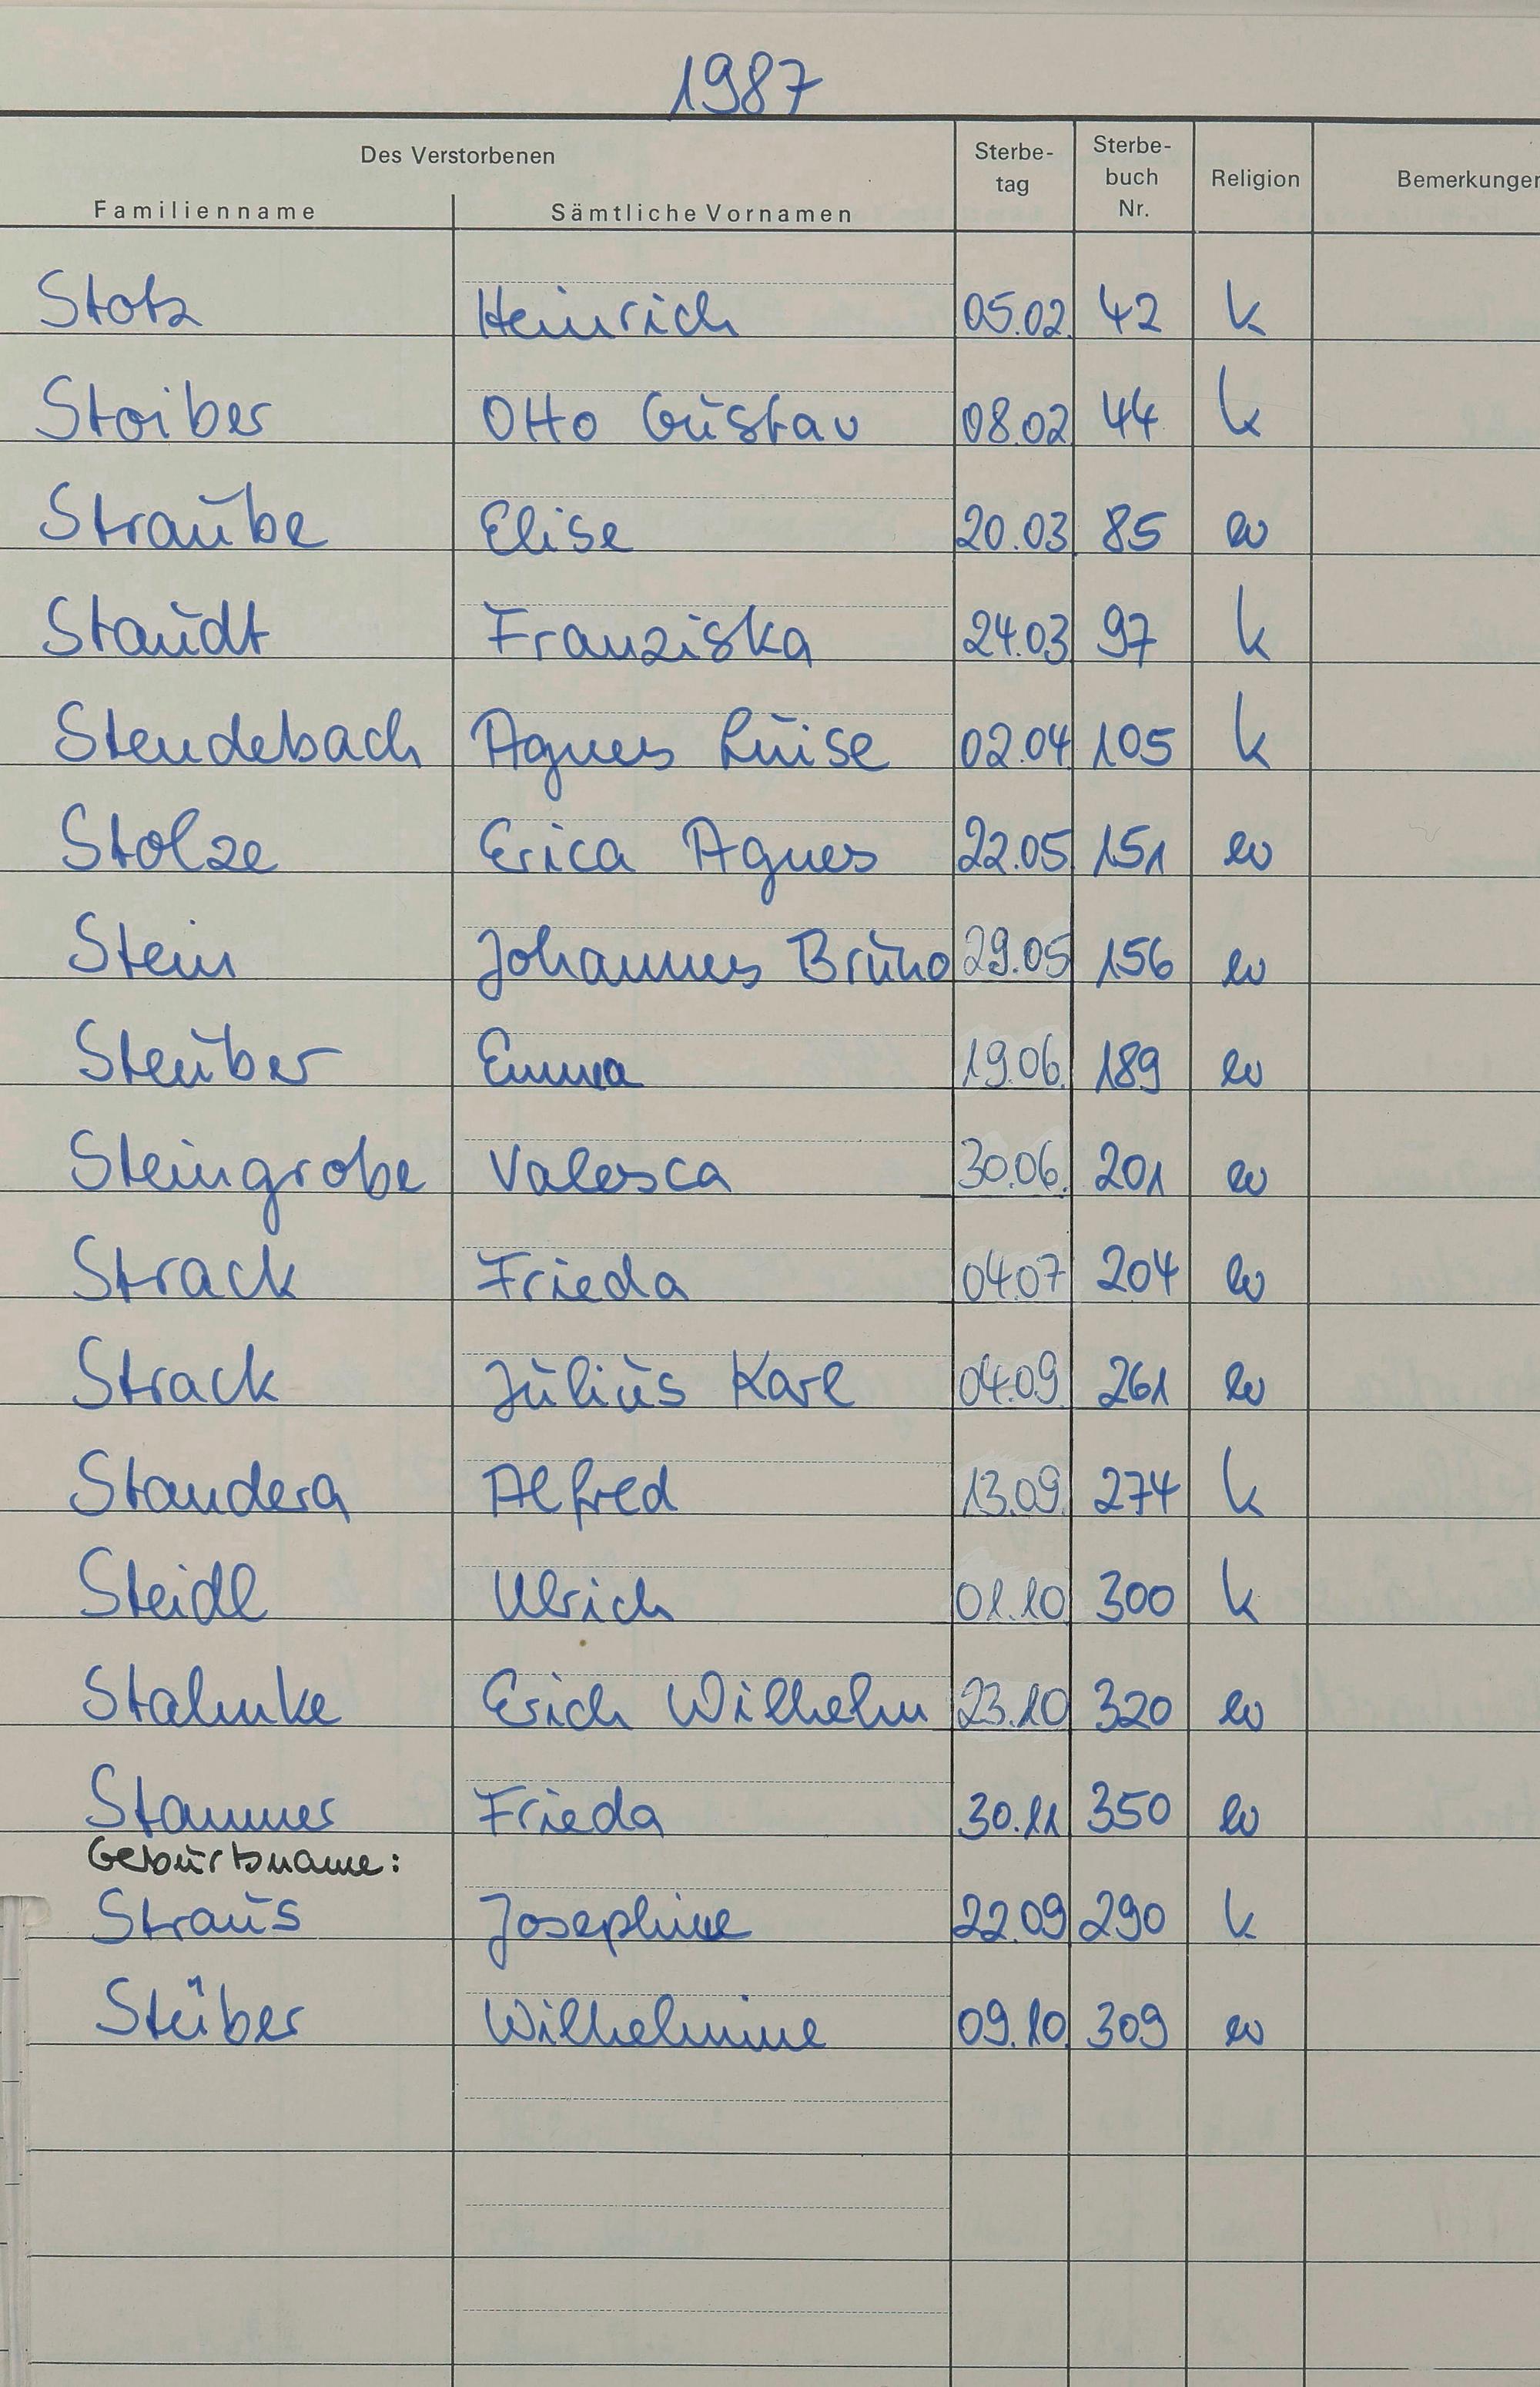 1987
Des Verstorbenen
Familienname Sämtliche Vornamen Sterbe-tag Sterbe-buch Nr. Religion Bemerkungen
Stotz Heinrich 05.02. 42 k
Stoiber Otto Gustav 08.02 44 k
Straube Elise 20.03 85 ev
Staudt Franziska 24.03 97 k
Stendebach Agnes Luise 02.04 105 k
Stolze Erica Agnes 22.05 151 ev
Stein Johannes Bruno 29.05 156 ev
Steuber Emma 19.06. 189 ev
Steingrobe Valesca 30.06. 201 ev
Strack Frieda 04.07 204 ev
Strack Julius Karl 04.09. 261 ev
Standera Alfred 13.09. 274 k
Steidl Ulrich 01.10 300 k
Stahnke Erich Wilhelm 23.10 320 ev
Stammer Frieda 30.11 350 ev
Geburtsname:
Straus Josephine 22.09 290 k
Stüber Wilhelmine 09.10. 309 ev